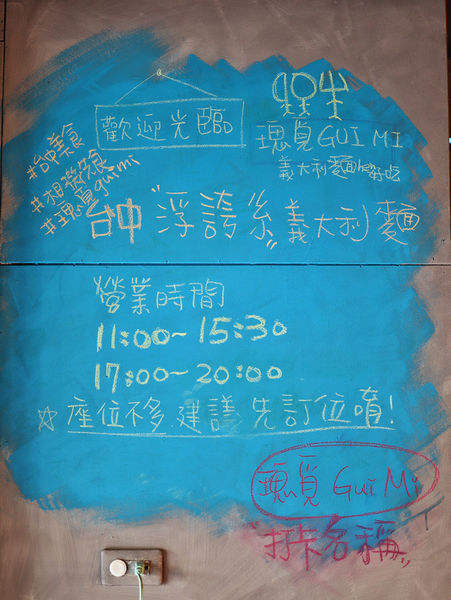 歡迎光臨
瑰覓 GUI MI
義大利麵好吃
#台中美食
#瑰覓guimi
台中"浮誇"系義大利麵
營業時間
11:00~15:30
17:00~20:00
☆座位不多,建議先訂位唷!
瑰覓 Gui Mi
"打卡名稱"